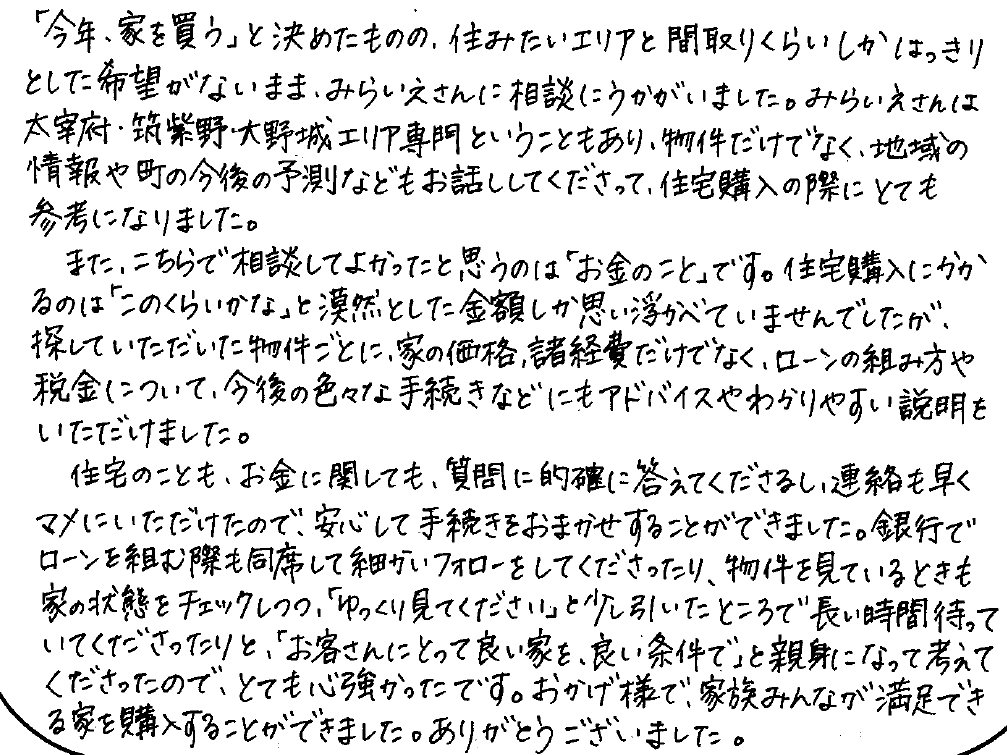 「今年、家を買う」と決めたものの、住みたいエリアと間取りくらいしかはっきり
とした希望がないまま、みらいえさんに相談にうかがいました。みらいえさんは
太宰府・筑紫野・大野城エリア専門ということもあり、物件だけでなく、地域の
情報や町の今後の予測などもお話ししてくださって、住宅購入の際にとても
参考になりました。
また、こちらで相談してよかったと思うのは「お金のこと」です。住宅購入にかか
るのは「このくらいかな」と漠然とした金額しか思い浮かべていませんでしたが、
探していただいた物件ごとに、家の価格、諸経費だけでなく、ローンの組み方や
税金について、今後の色々な手続きなどにもアドバイスやわかりやすい説明を
いただけました。
住宅のことも、お金に関しても、質問に的確に答えてくださるし、連絡も早く
マメにいただけたので、安心して手続きをおまかせすることができました。銀行で
ローンを組む際も同席して細かいフォローをしてくださったり、物件を見ているときも
家の状態をチェックしつつ、「ゆっくり見てください」と少し引いたところで長い時間待って
いてくださったりと、「お客さんにとって良い家を、良い条件で」と親身になって考えて
くださったので、とても心強かったです。おかげ様で、家族みんなが満足でき
る家を購入することができました。ありがとうございました。